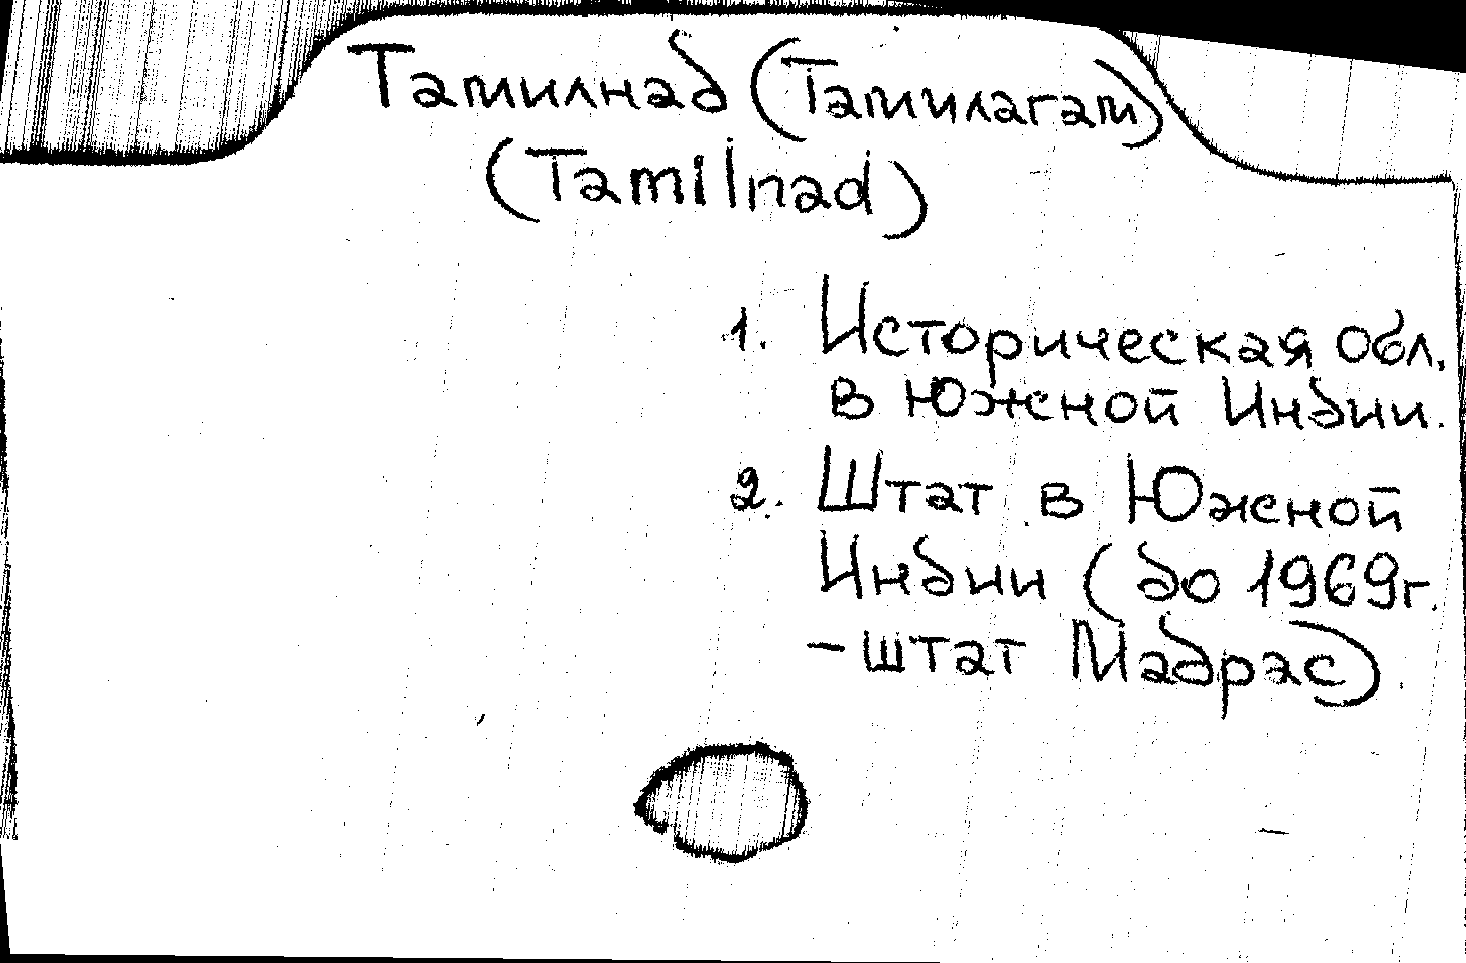 Тамилнад (Тамилагам)
(Tamilnad)
1. Историческая обл.
в Южной Индии.
2. Штат в Южной
Индии (до 1969г.
- штат Мадрас).